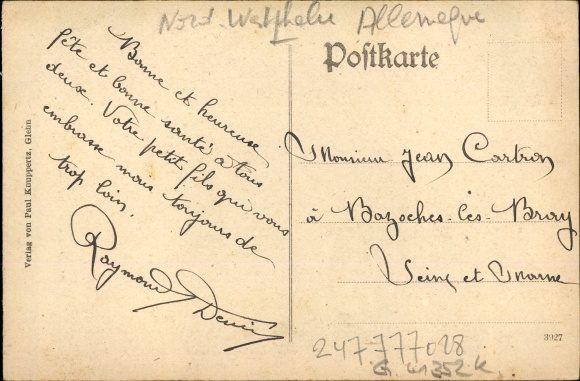 Nord-Westphalie Allemagne
Postkarte
Bonne et heureuse
fête et bonne santé à tous
deux. Votre petit fils qui vous
embrasse mous toujours de
trop loin.
Raymond Denis
Monsieur Jean Cartron
à Bazoches-les-Bray
Seine et Marne
Verlag von Paul Knuppertz, Glehn
3927
247777028
G. 41352k